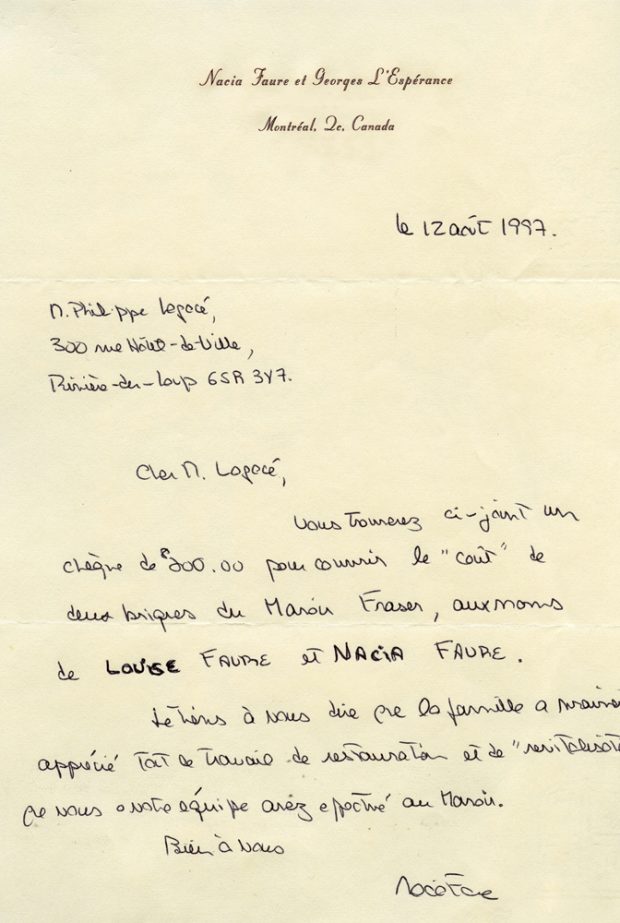 Nacia Faure et Georges L'Espérance
Montréal, Qc. Canada
le 12 août 1997.
M. Philippe Lagacé,
300 rue Hôtel-de-Ville,
Rivière-du-Loup G5R 3Y7.
Cher M. Lagacé,
Vous trouverez ci-joint un
chèque de $200.00 pour couvrir le "coût" de
deux briques du Manoir Fraser, aux noms
de LOUISE FAURE et NACIA FAURE.
Je tiens à vous dire que la famille a vraiment
apprécié tout ce travail de restauration et de "revitalisat
que vous et votre équipe avez effectué au Manoir.
Bien à vous